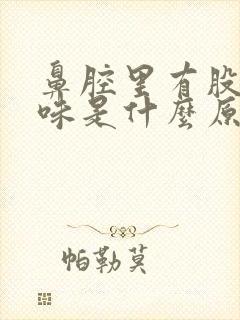 鼻腔里有股
味是什麼原
帕勒莫